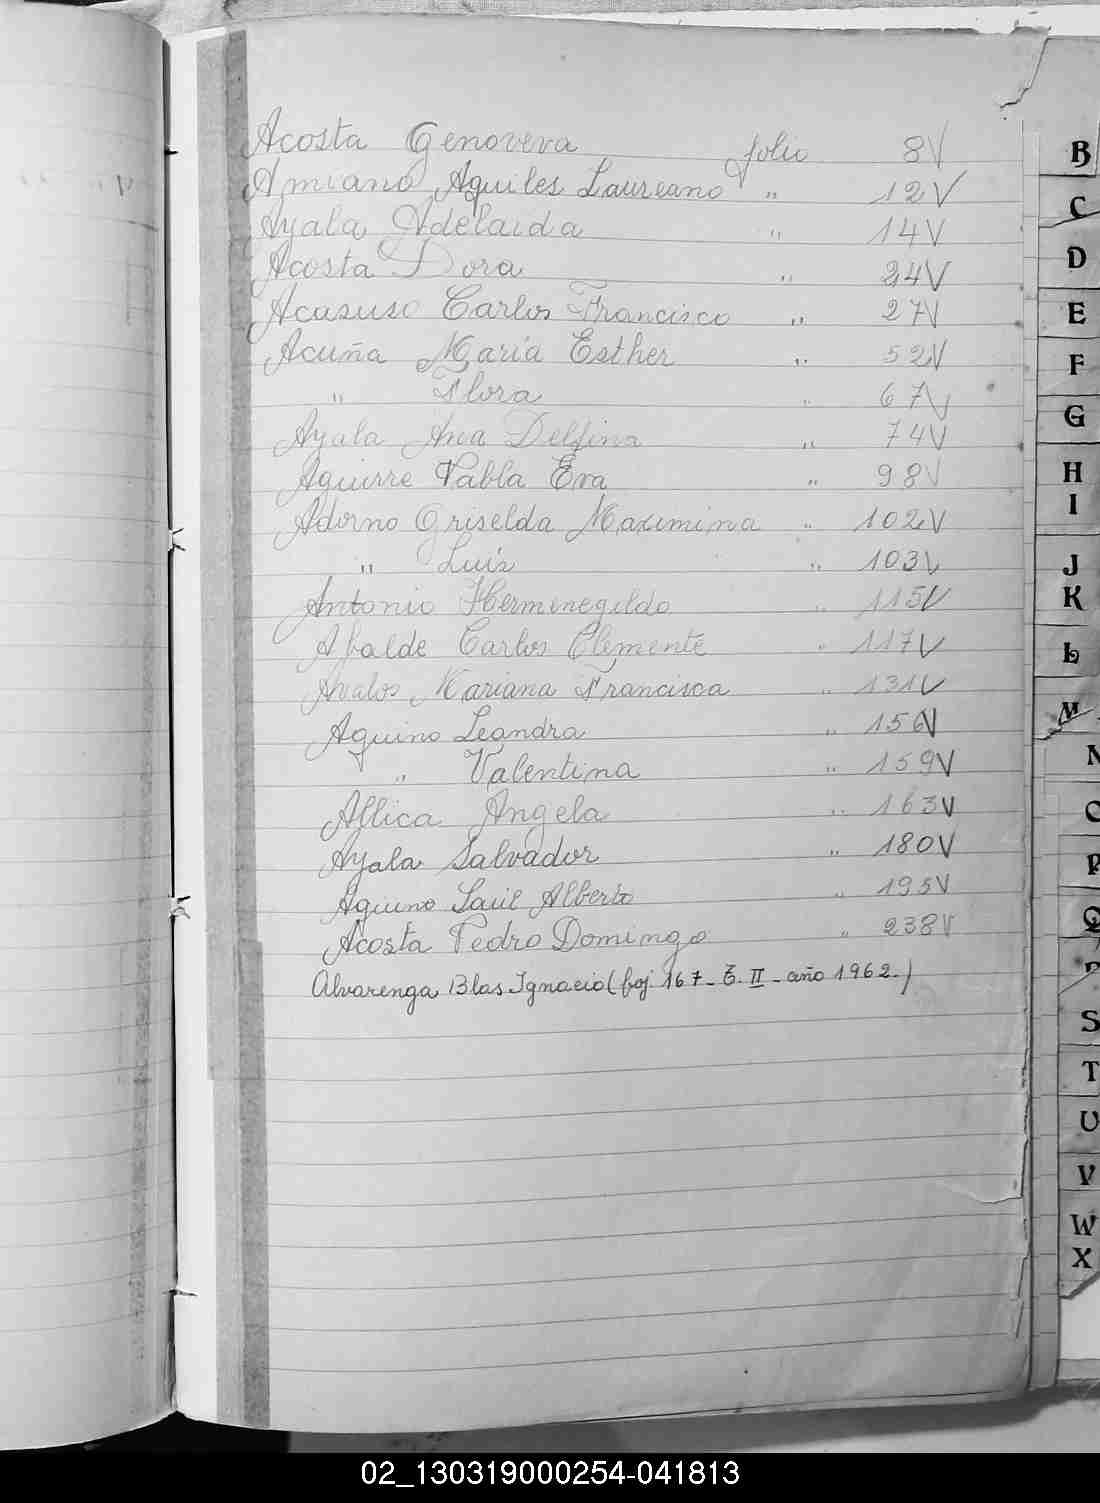 Acosta Genoveva folio 8V
Amiano Aquiles Laureano " 12V
Ayala Adelaida " 14V
Acosta Dora " 24V
Acasuso Carlos Francisco " 27V
Acuña Maria Esther " 52V
" Flora " 67V
Ayala Ana Delfina " 74V
Aguirre Pabla Eva " 98V
Adorno Griselda Maximina " 102V
" Luis " 103V
Antonio Hermenegildo " 115V
Afalde Carlos Clemente " 117V
Avalos Mariana Francisca " 131V
Aquino Leandra " 156V
" Valentina " 159V
Allica Angela " 163V
Ayala Salvador " 180V
Aquino Saúl Alberto " 195V
Acosta Pedro Domingo " 238V
Alvarenga Blas Ignacio (foj. 167 - T. II - año 1962.)
B
C
D
E
F
G
H
I
J
K
L
M
N
O
P
Q
S
T
U
V
W
X
02_130319000254-041813